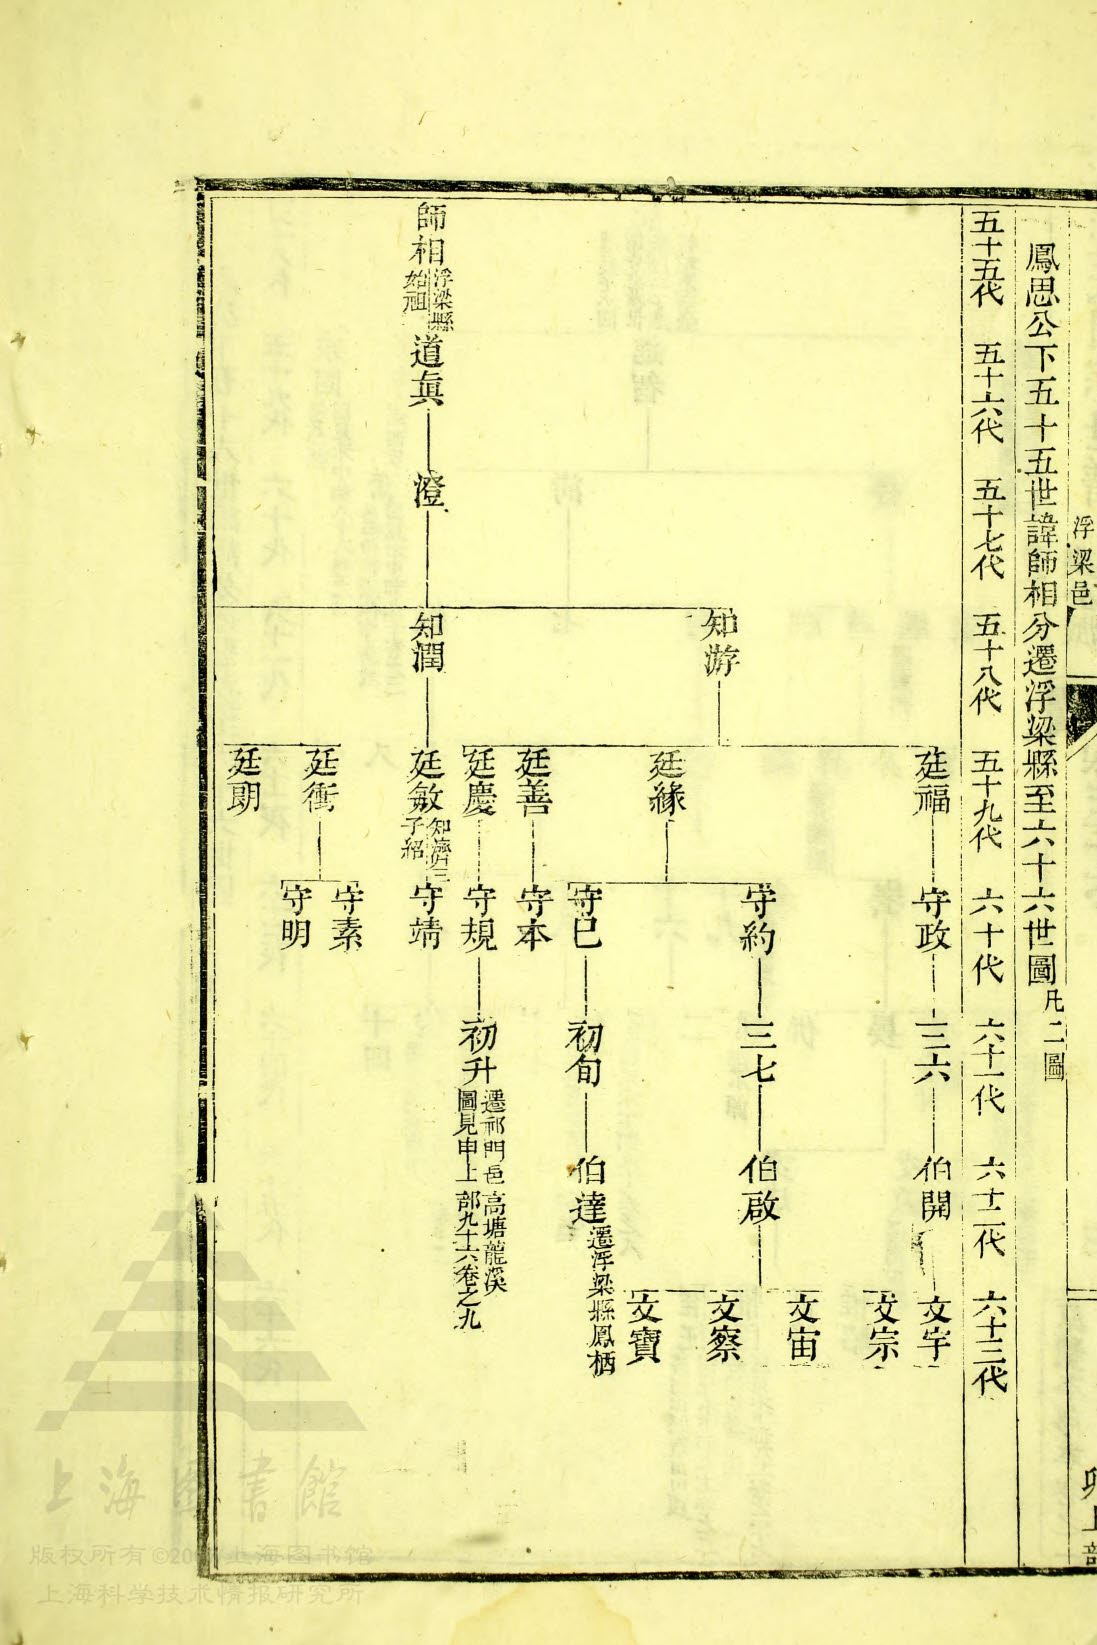 浮梁邑
卯上部
鳳思公下五十五世諱師相分遷浮梁縣至六十六世圖凡二圖
五十五代 五十六代 五十七代 五十八代 五十九代 六十代 六十一代 六十二代 六十三代
廷福 守政 三六 伯開 文宇
文宗
知游
文宙
守約 三七 伯啟
文察
廷緣
文寶
守已 初旬 伯達 遷浮梁縣鳳栖
廷善 守本
廷慶 守規 初升 遷祁門邑高塘龍溪
圖見申上部九十六卷之九
師相 浮梁縣
始祖
道真 澄 知潤 廷敏 知濟三
子紹
守靖
守素
廷衝
守明
廷朗
上海图書館
版权所有©20 上海图书馆
上海科学技术情报研究所